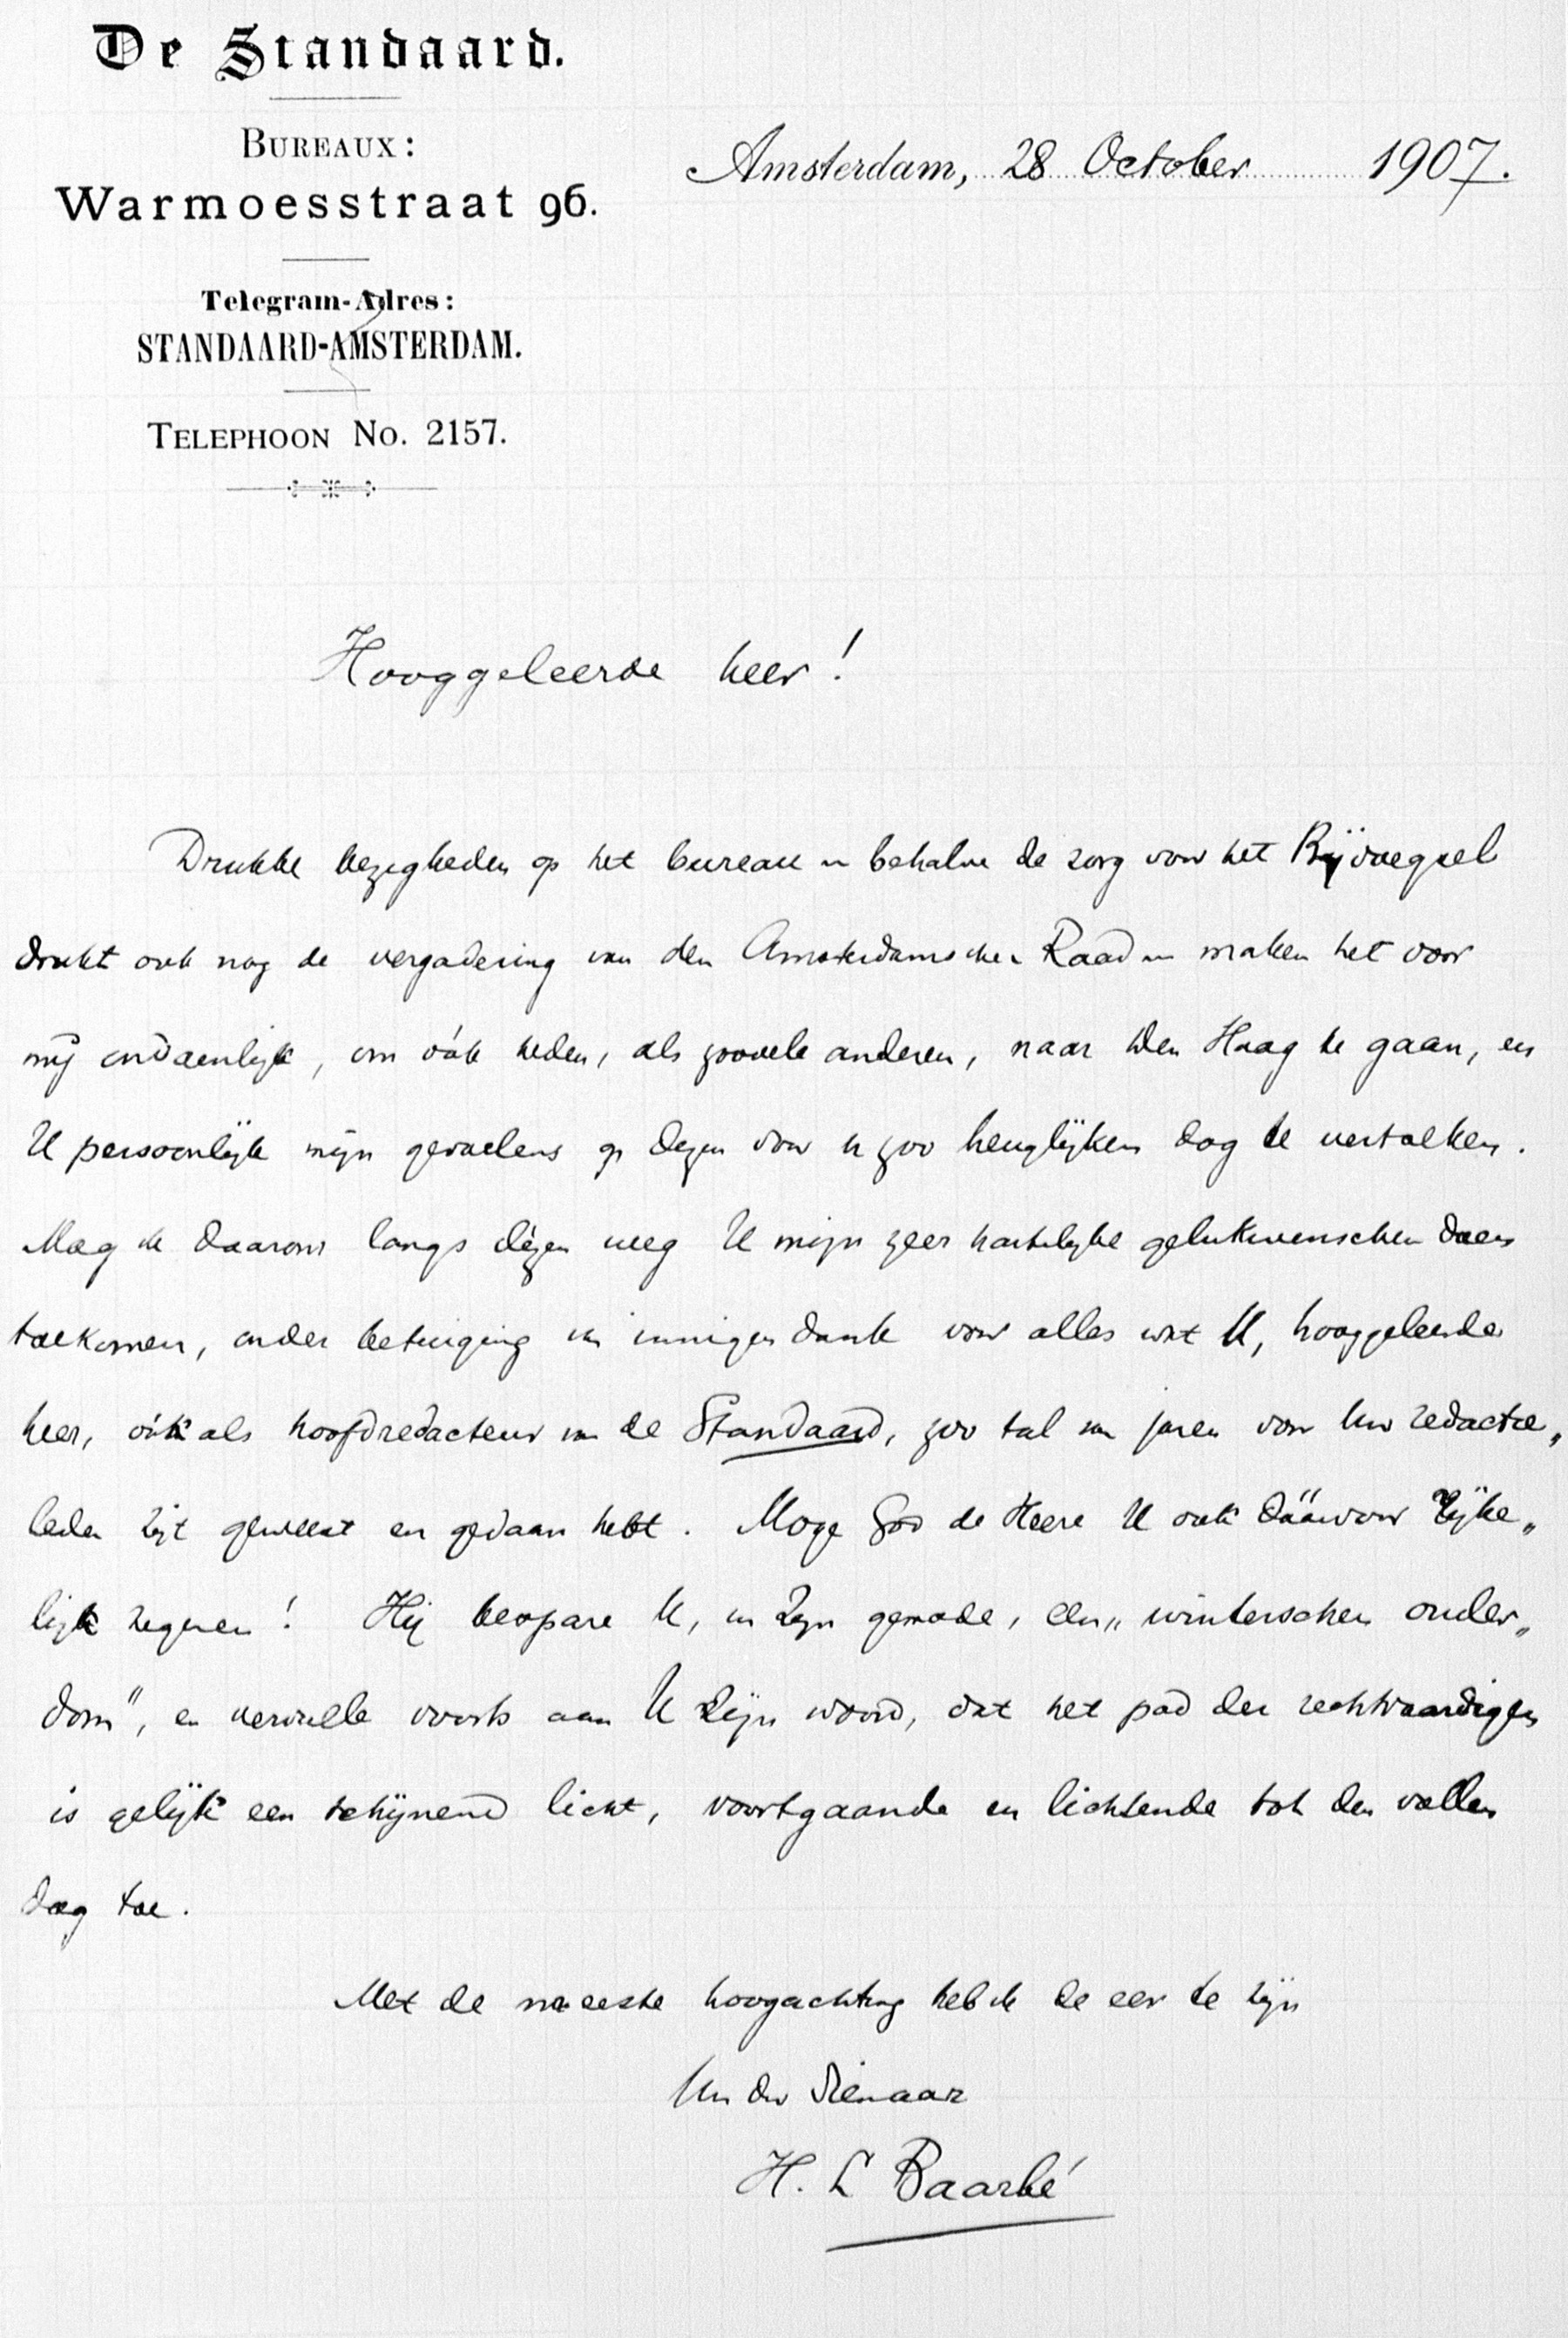 De Standaard.
BUREAUX:
Warmoesstraat 96.
Telegram-Adres:
STANDAARD-AMSTERDAM.
TELEPHOON No. 2157.
Amsterdam, 28 October 1907.
Hooggeleerde heer!
Drukke bezigheden op het bureau – behalve de zorg voor het Bijvoegsel
drukt ook nog de vergadering van den Amsterdamschen Raad – maken het voor
mij ondoenlijk, om óók heden, als zoovele anderen, naar Den Haag te gaan, en
U persoonlijk mijn gevoelens op dezen voor u zoo heuglijken dag te vertolken.
Mag ik daarom langs dézen weg U mijn zeer hartelijke gelukwenschen doen
toekomen, onder betuiging van innigen dank voor alles wat U, hooggeleerde
heer, óók als hoofdredacteur van de Standaard, zoo tal van jaren voor Uw redactie„
leden zijt geweest en gedaan hebt. Moge God de Heere U ook dáárvoor rijke„
lijk zegenen! Hij bespare U, in Zijn genade, een „winterschen ouder„
dom”, en vervulle voorts aan U Zijn woord, dat het pad der rechtvaardigen
is gelijk een schijnend licht, voortgaande en lichtende tot den vollen
dag toe.
Met de meeste hoogachting heb ik de eer te zijn
Uw dw dienaar
H. L Baarbé